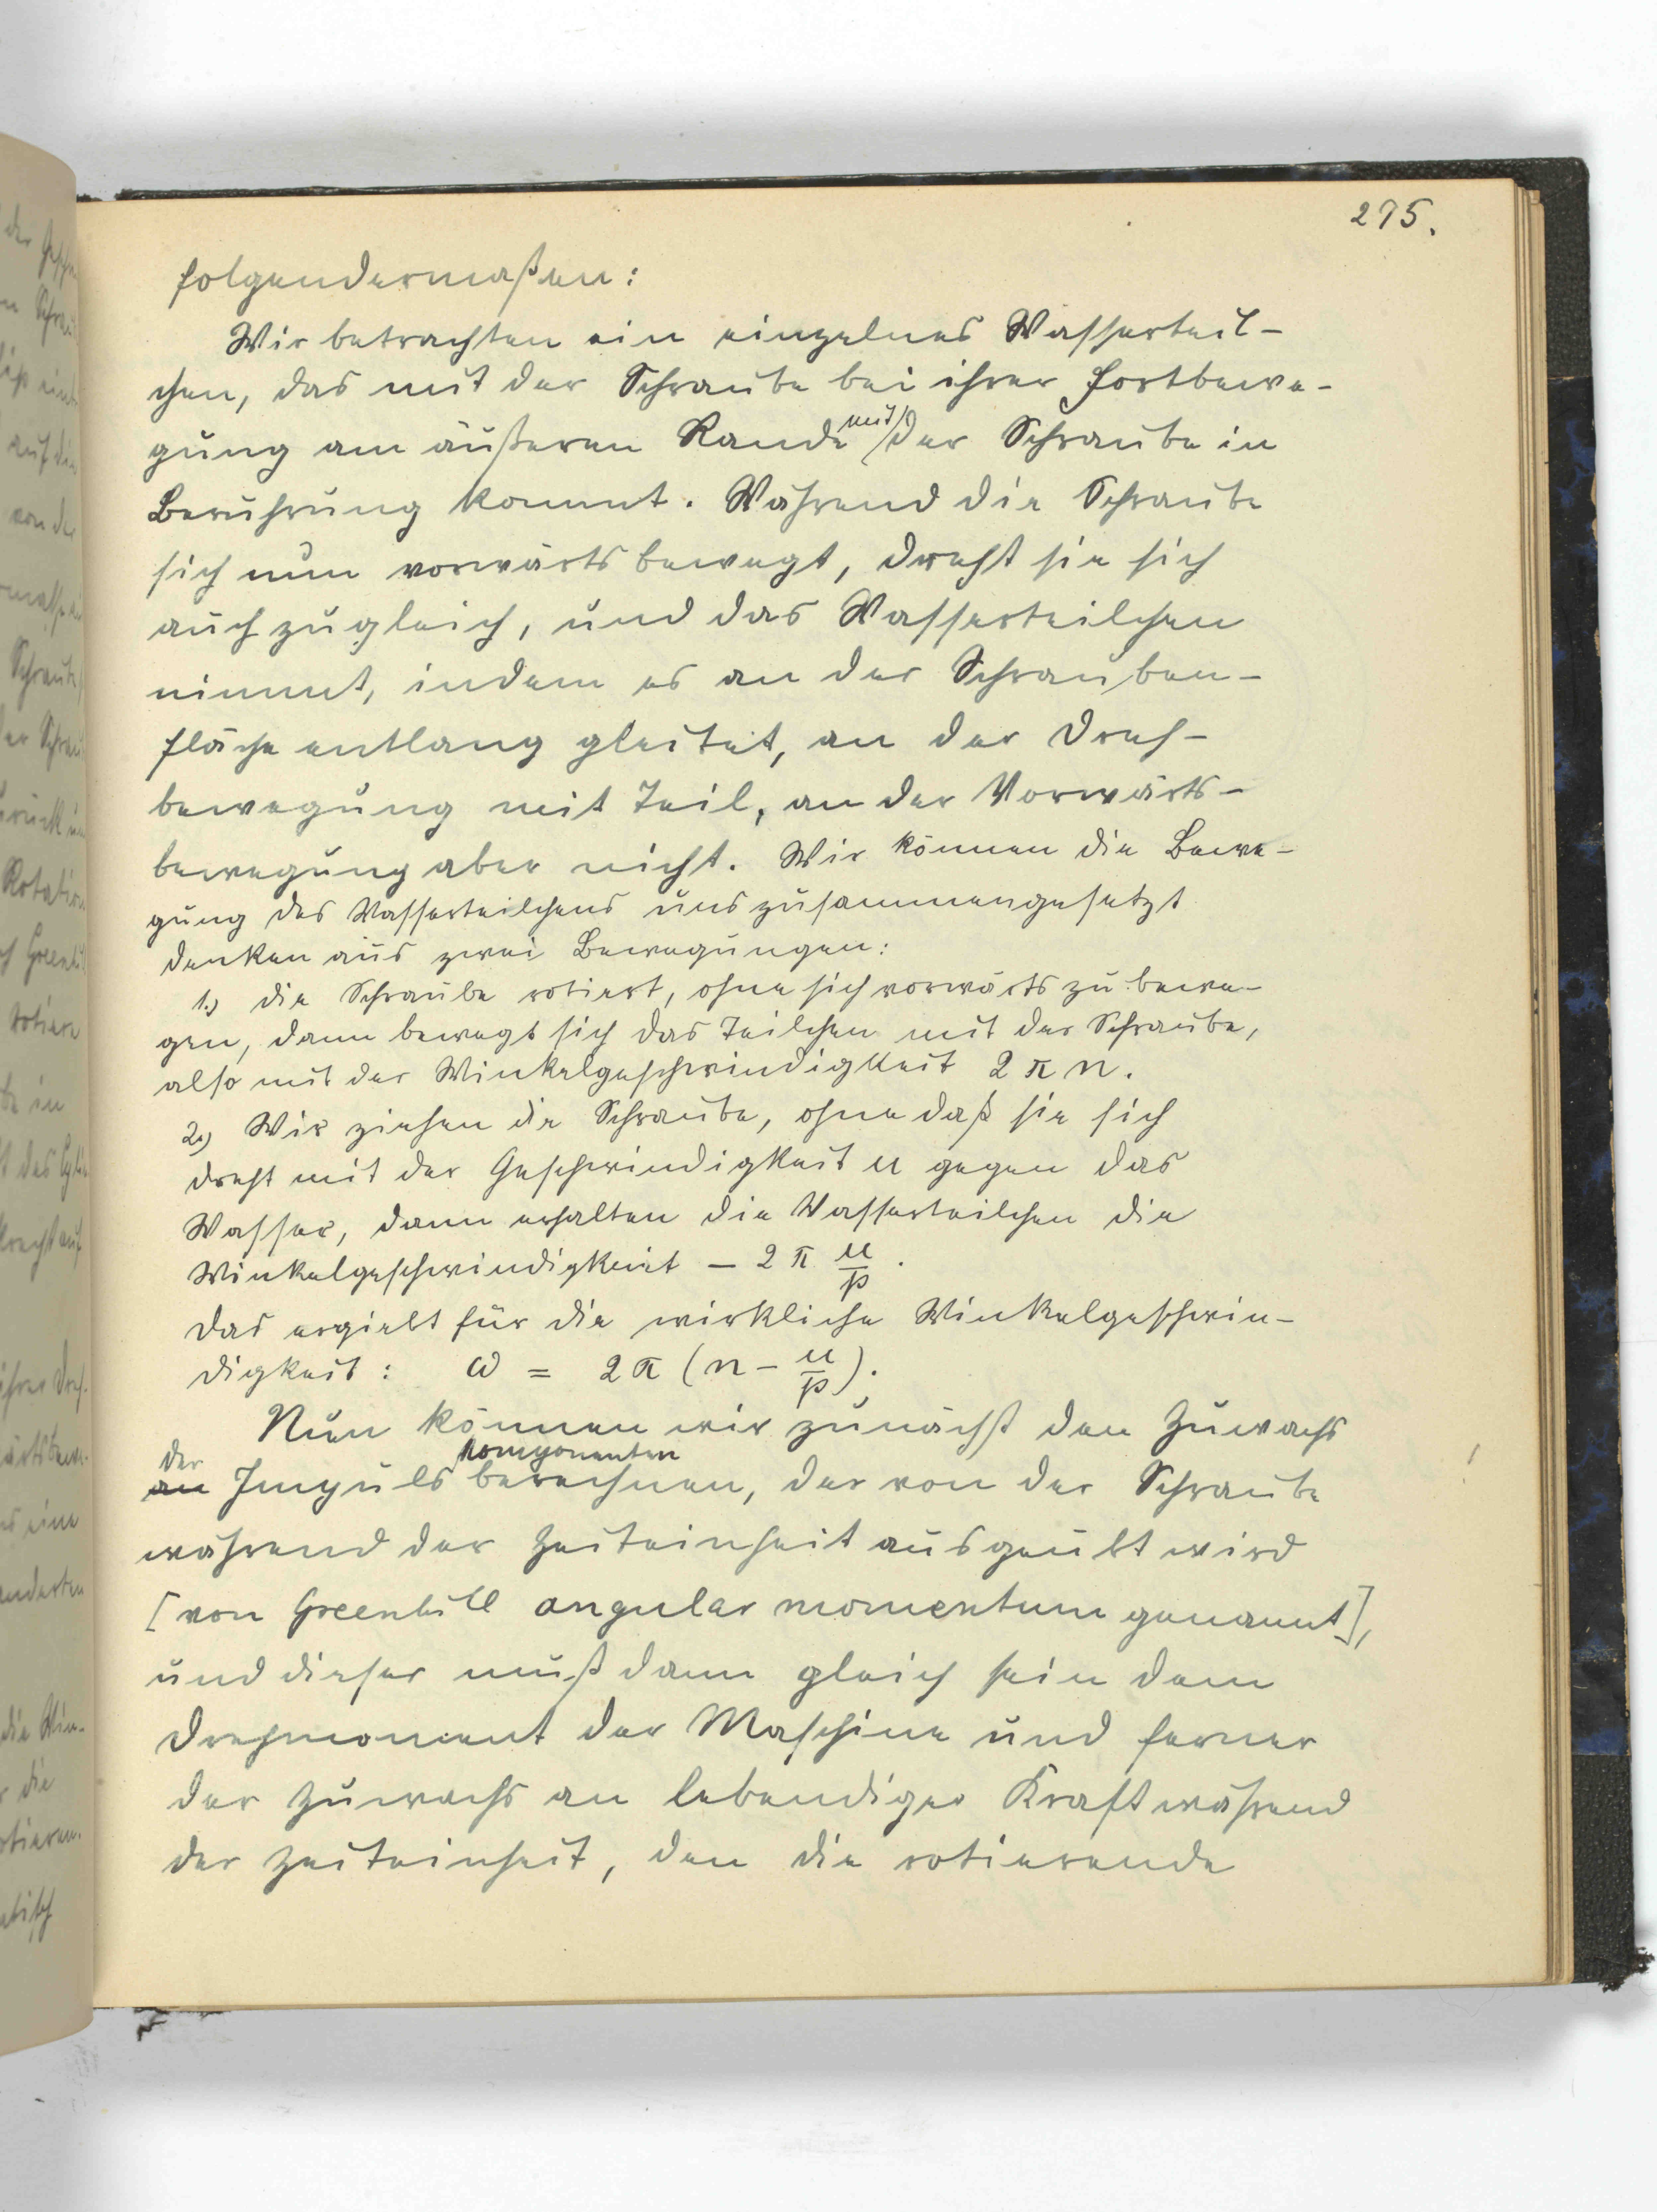 275.
folgendermaßen:
Wir betrachten ein einzelnes Wasserteil-
chen, das mit der Schraube bei ihrer Fortbewe-
gung am äußeren Rande mit der Schraube in
Berührung kommt. Während die Schraube
sich nun vorwärts bewegt, dreht sie sich
auch zugleich, und das Wasserteilchen
nimmt, indem es an der Schrauben-
fläche entlang gleitet, an der Dreh-
bewegung mit Teil, an der Vorwärts-
bewegung aber nicht. Wir können die Bewe-
gung des Wasserteilchens uns zusammengesetzt
denken aus zwei Bewegungen:
1.) die Schraube rotiert, ohne sich vorwärts zu bewe-
gen, dann bewegt sich das Teilchen mit der Schraube,
also mit der Winkelgeschwindigkeit 2 π n.
2.) Wir ziehen die Schraube, ohne daß sie sich
dreht mit der Geschwindigkeit u gegen das
Wasser, dann erhalten die Wasserteilchen die
Winkelgeschwindigkeit – 2 π u/p.
Das ergiebt für die wirkliche Winkelgeschwin-
digkeit: ω = 2π (n – u/p).
Nun können wir zunächst den Zuwachs
der komponenten
an Impuls berechnen, der von der Schraube
während der Zeiteinheit ausgeübt wird
[von Greenhill angular momentum genannt],
und dieser muß dann gleich sein dem
Drehmoment der Maschine und ferner
der Zuwachs an lebendiger Kraft während
der Zeiteinheit, den die rotierende